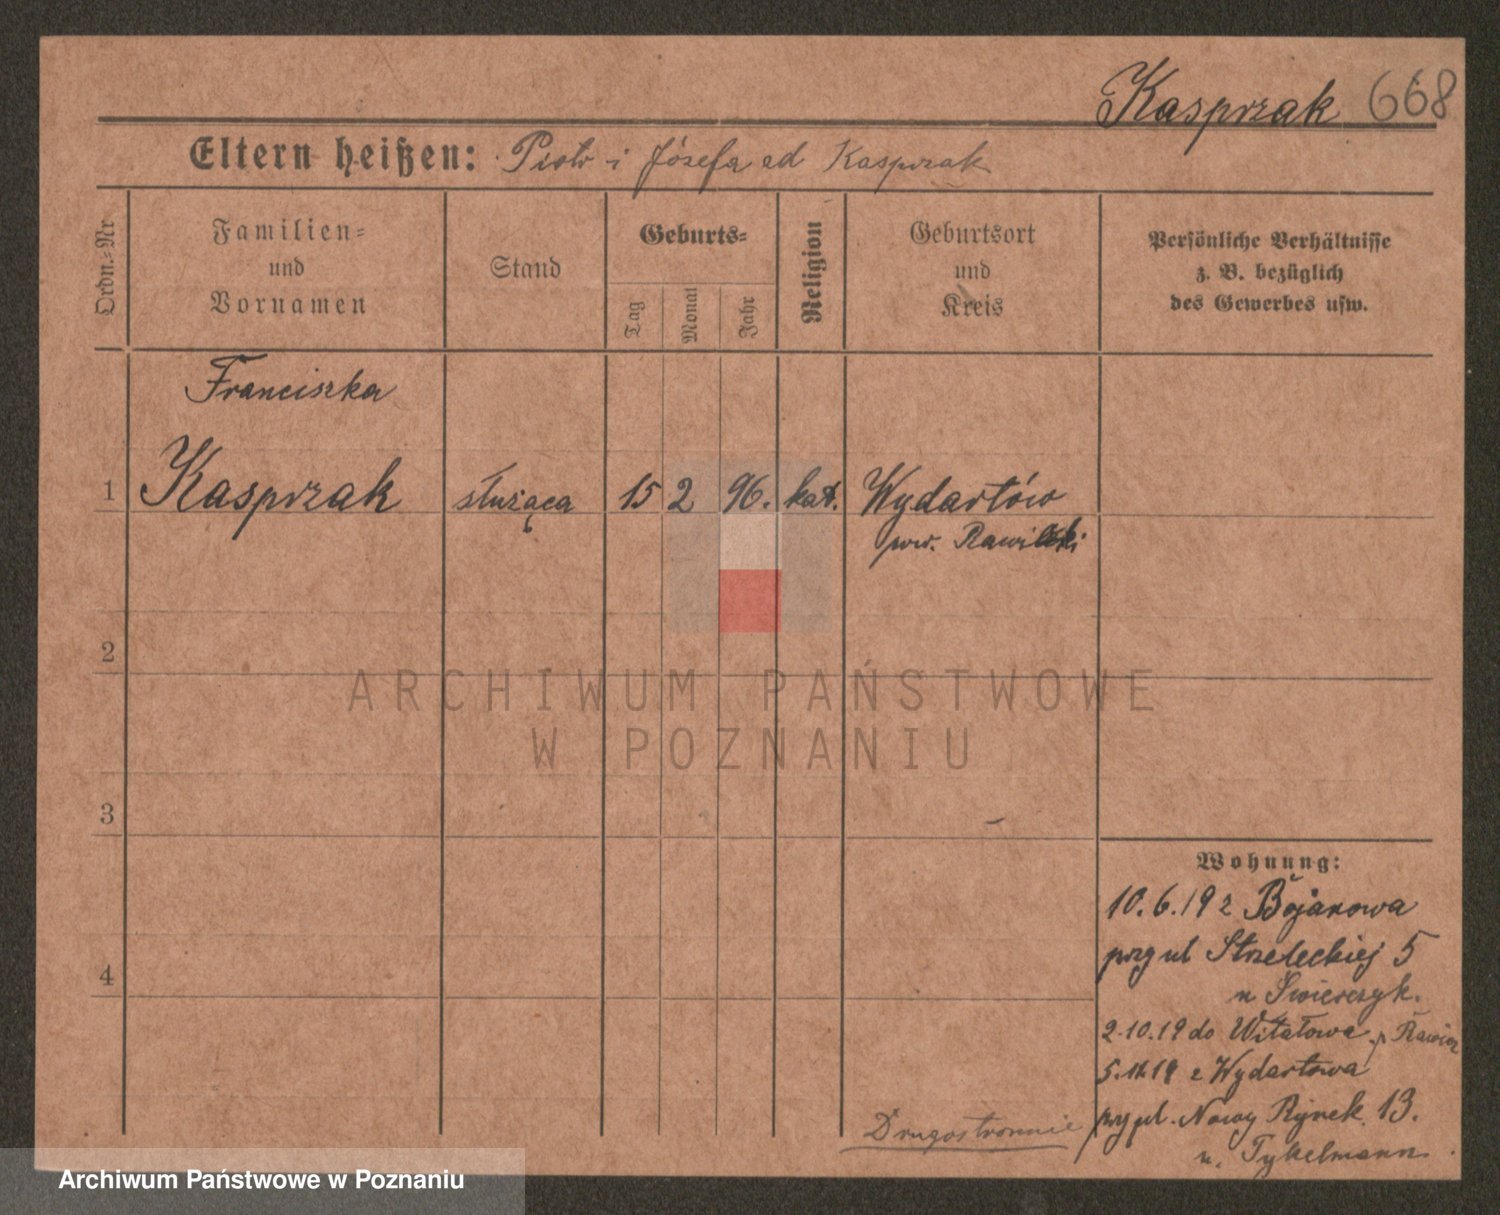 Kasprzak 668
Eltern heißen: Piotr i Józefa ed Kasprzak
Ordn.-Nr
Familien-
und
Vornamen
Stand
Geburts-
Tag
Monat
Jahr
Religion
Geburtsort
und
Kreis
Persönliche Verhältnisse
z. B. bezüglich
des Gewerbes usw.
Franciszka
1 Kasprzak służąca 15 2 96. kat. Wydartów
pow. Rawicki
2
ARCHIWUM PAŃSTWOWE
W POZNANIU
3
Wohnung:
10.6.19 z Bojanowa
przy ul Strzeleckiej 5
4
u Świerczyk.
2.10.19 do Witałowa p Rawicz
5.11.19 z Wydartowa
przy ul. Nowy Rynek 13.
u. Tykelmann.
Drugostronnie
Archiwum Państwowe w Poznaniu